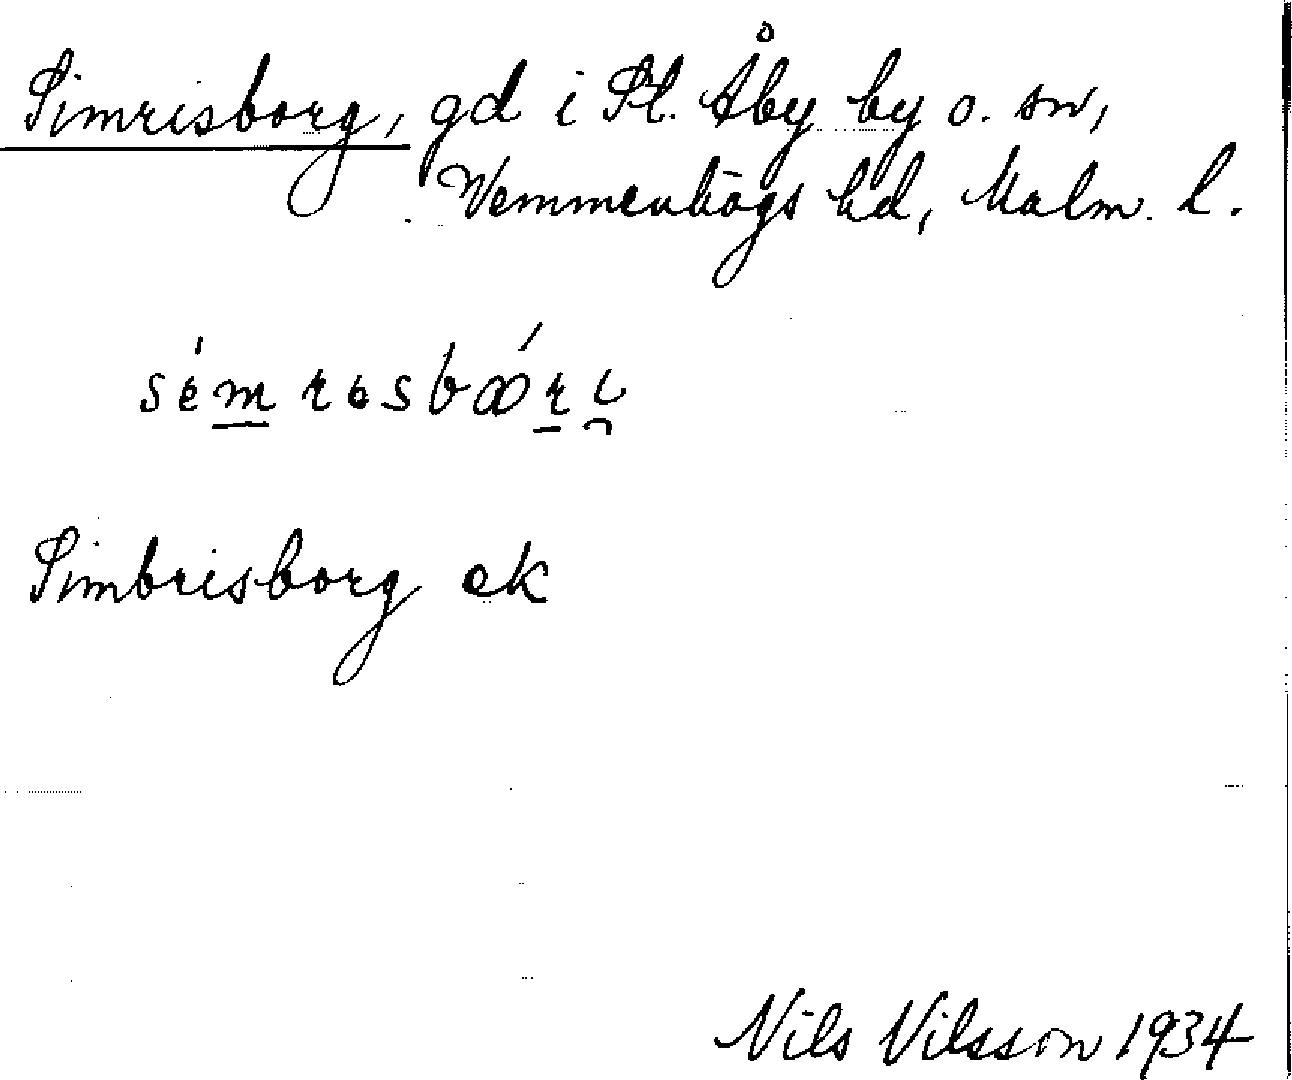 Simrisborg, gd i St. Åby by o. sn,
Vemmenhögs hd, Malm. l.
Simbrisborg ek
Nils Nilsson 1934